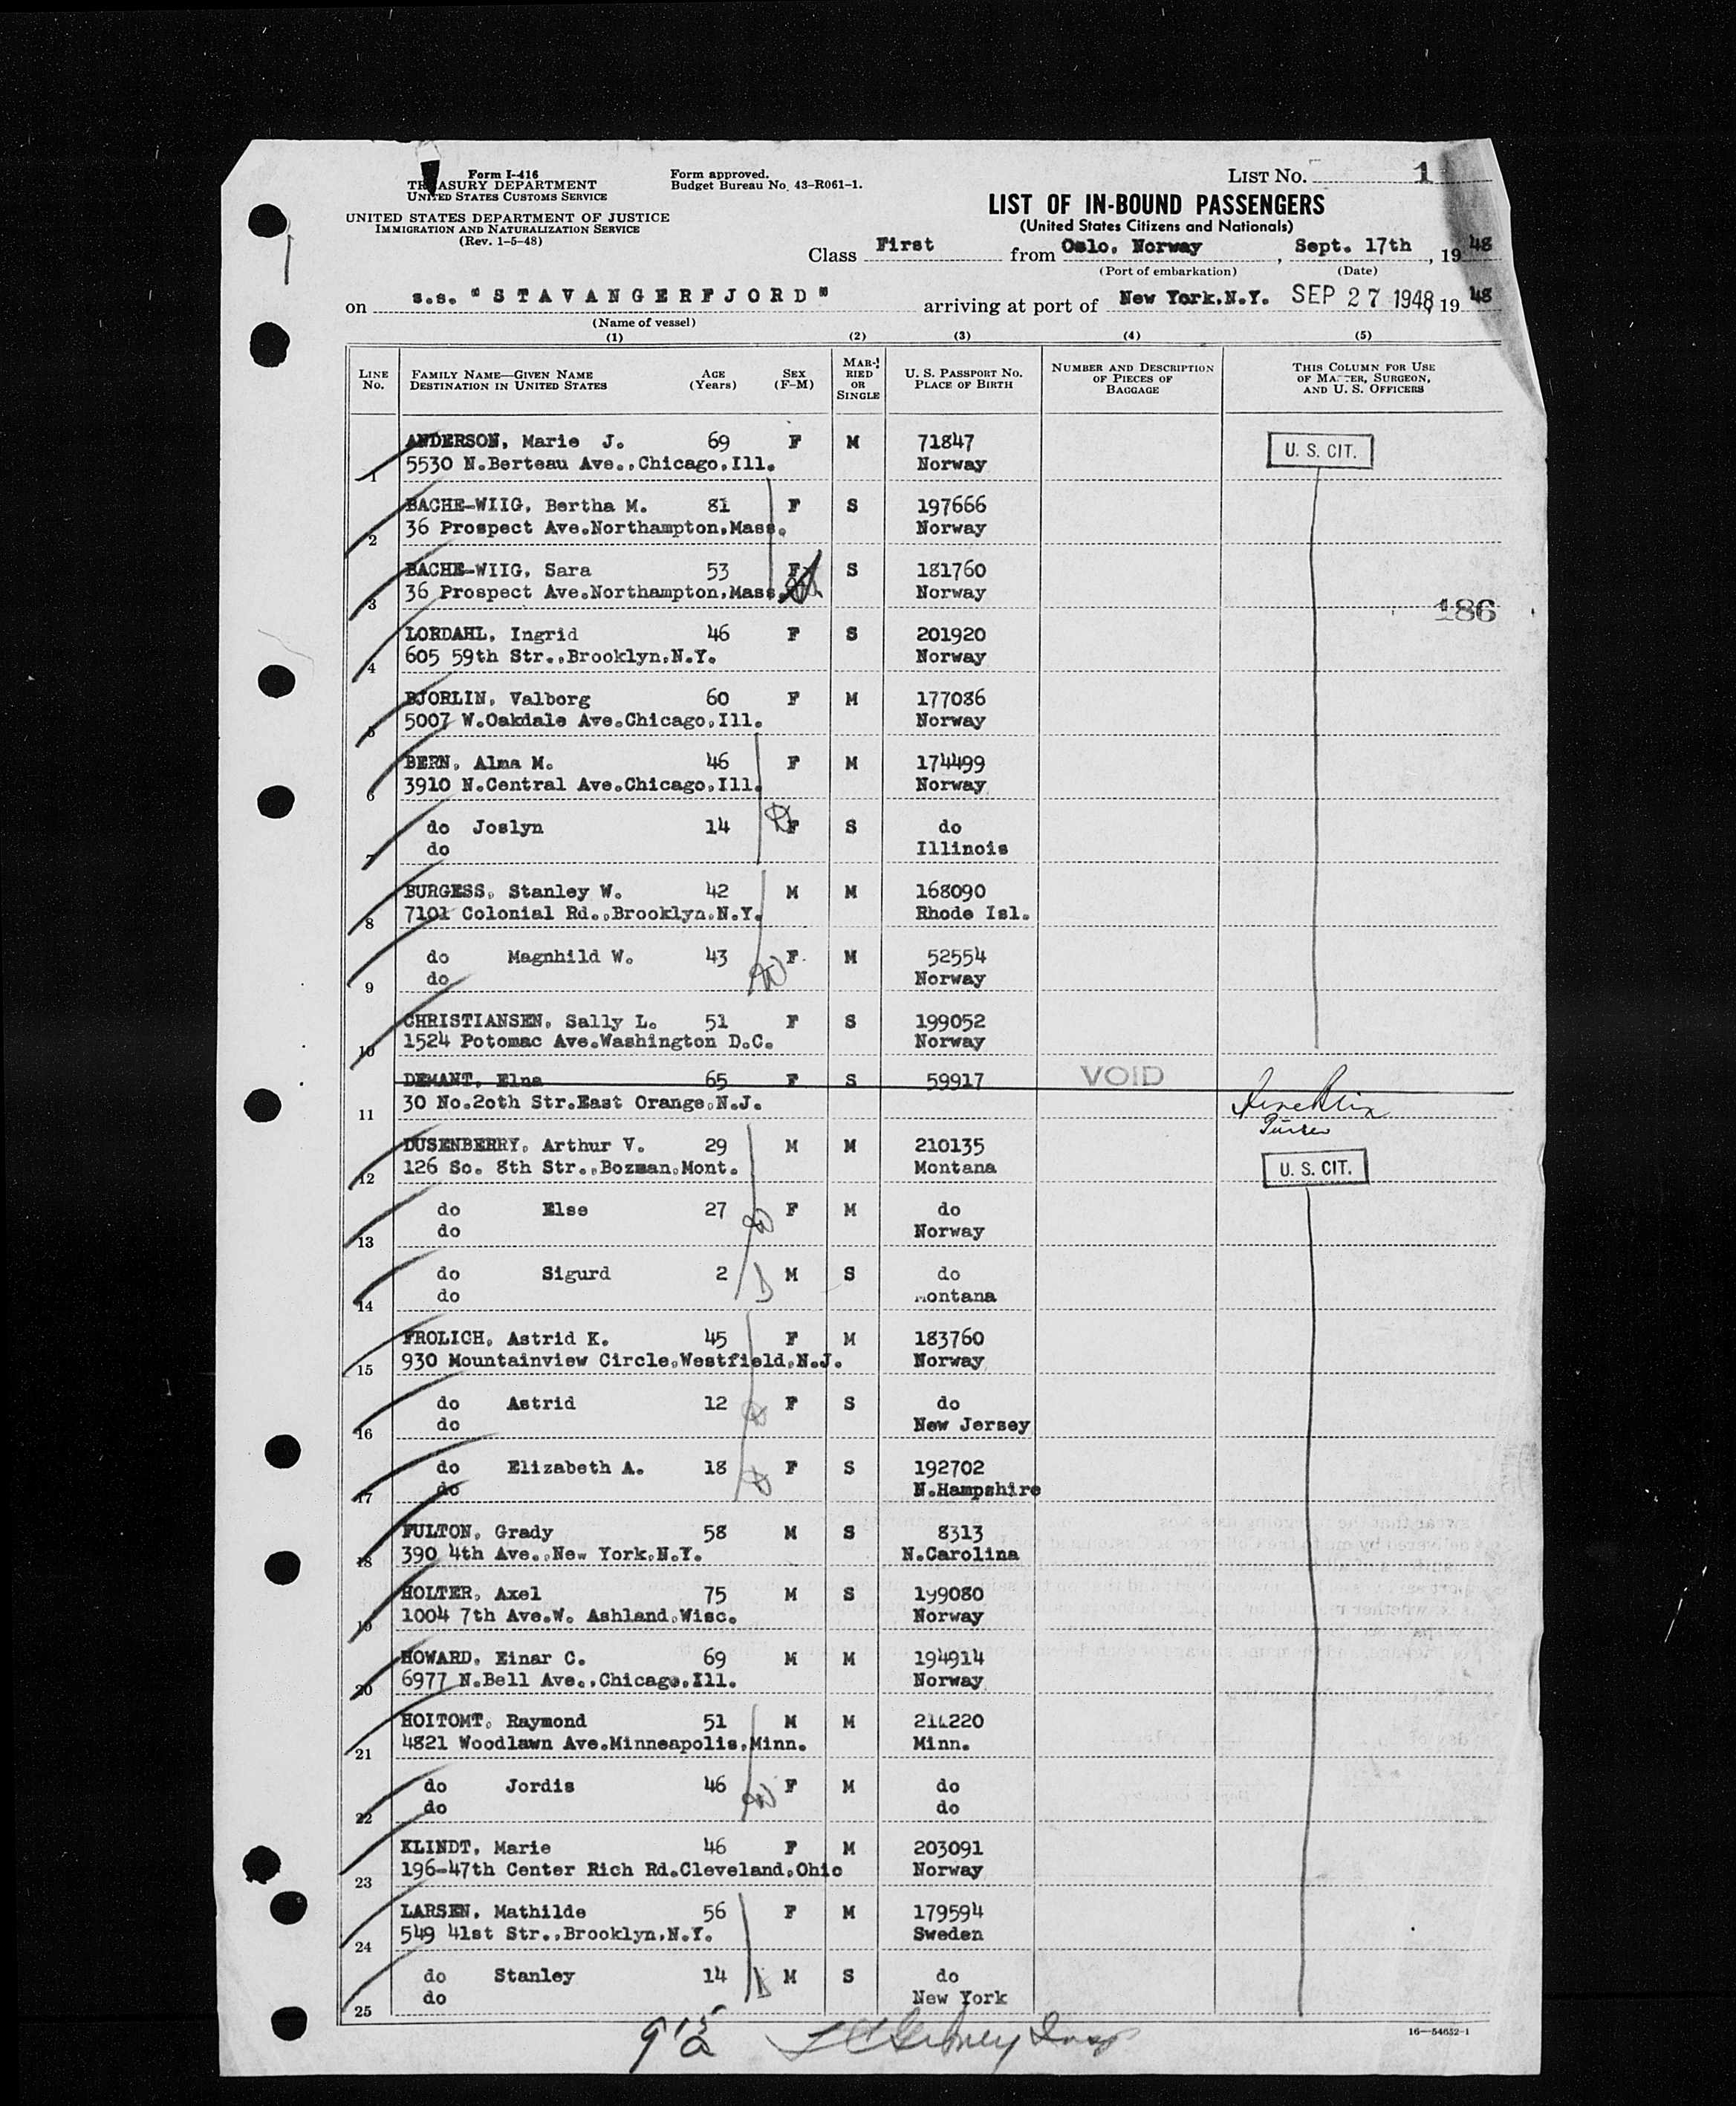 Form I-416
TREASURY DEPARTMENT
UNITED STATES CUSTOMS SERVICE
UNITED STATES DEPARTMENT OF JUSTICE
IMMIGRATION AND NATURALIZATION SERVICE
(Rev. 1-5-48)
Form approved.
Budget Bureau No. 43-R061-1.
LIST NO. 1
LIST OF IN-BOUND PASSENGERS
(United States Citizens and Nationals)
Class First from Oslo, Norway, Sept. 17th, 19 48
(Port of embarkation) (Date)
on s.s. "STAVANGERFJORD" arriving at port of New York.N.Y. SEP 27 1948, 19 48
(Name of vessel)
(1) (2) (3) (4) (5)
LINE NO. FAMILY NAME—GIVEN NAME DESTINATION IN UNITED STATES AGE (Years) SEX (F-M) MARRIED OR SINGLE U. S. PASSPORT NO. PLACE OF BIRTH NUMBER AND DESCRIPTION OF PIECES OF BAGGAGE THIS COLUMN FOR USE OF MASTER, SURGEON, AND U. S. OFFICERS
ANDERSON, Marie J. 69 F M 71847 U. S. CIT.
1 5530 N.Berteau Ave.,Chicago,Ill. Norway
BACHE-WIIG, Bertha M. 81 F S 197666
2 36 Prospect Ave.Northampton,Mass. Norway
BACHE-WIIG, Sara 53 F S 181760
3 36 Prospect Ave.Northampton,Mass. Norway
186
LORDAHL, Ingrid 46 F S 201920
4 605 59th Str.,Brooklyn,N.Y. Norway
BJORLIN, Valborg 60 F M 177086
5 5007 W.Oakdale Ave.Chicago,Ill. Norway
BERN, Alma M. 46 F M 174499
6 3910 N.Central Ave.Chicago,Ill. Norway
do Joslyn 14 F S do
7 do Illinois
BURGESS, Stanley W. 42 M M 168090
8 7101 Colonial Rd.,Brooklyn,N.Y. Rhode Isl.
do Magnhild W. 43 F M 52554
9 do Norway
CHRISTIANSEN, Sally L. 51 F S 199052
10 1524 Potomac Ave.Washington D.C. Norway
DEMANT, Elna 65 F S 59917 VOID
11 30 No.20th Str.East Orange,N.J.
Purser
DUSENBERRY, Arthur V. 29 M M 210135 U. S. CIT.
12 126 So. 8th Str.,Bozman,Mont. Montana
do Else 27 F M do
13 do Norway
do Sigurd 2 M S do
14 do Montana
FROLICH, Astrid K. 45 F M 183760
15 930 Mountainview Circle,Westfield,N.J. Norway
do Astrid 12 F S do
16 do New Jersey
do Elizabeth A. 18 F S 192702
17 do N.Hampshire
FULTON, Grady 58 M S 8313
18 390 4th Ave.,New York,N.Y. N.Carolina
HOLTER, Axel 75 M S 199080
19 1004 7th Ave.W. Ashland,Wisc. Norway
HOWARD, Einar C. 69 M M 194914
20 6977 N.Bell Ave.,Chicago,Ill. Norway
HOITOMT, Raymond 51 M M
21 4821 Woodlawn Ave.Minneapolis,Minn. Minn.
do Jordis 46 F M do
22 do do
KLINDT, Marie 46 F M 203091
23 196-47th Center Rich Rd.Cleveland,Ohio Norway
LARSEN, Mathilde 56 F M 179594
24 549 41st Str.,Brooklyn,N.Y. Sweden
do Stanley 14 M S do
25 do New York
16—54652-1